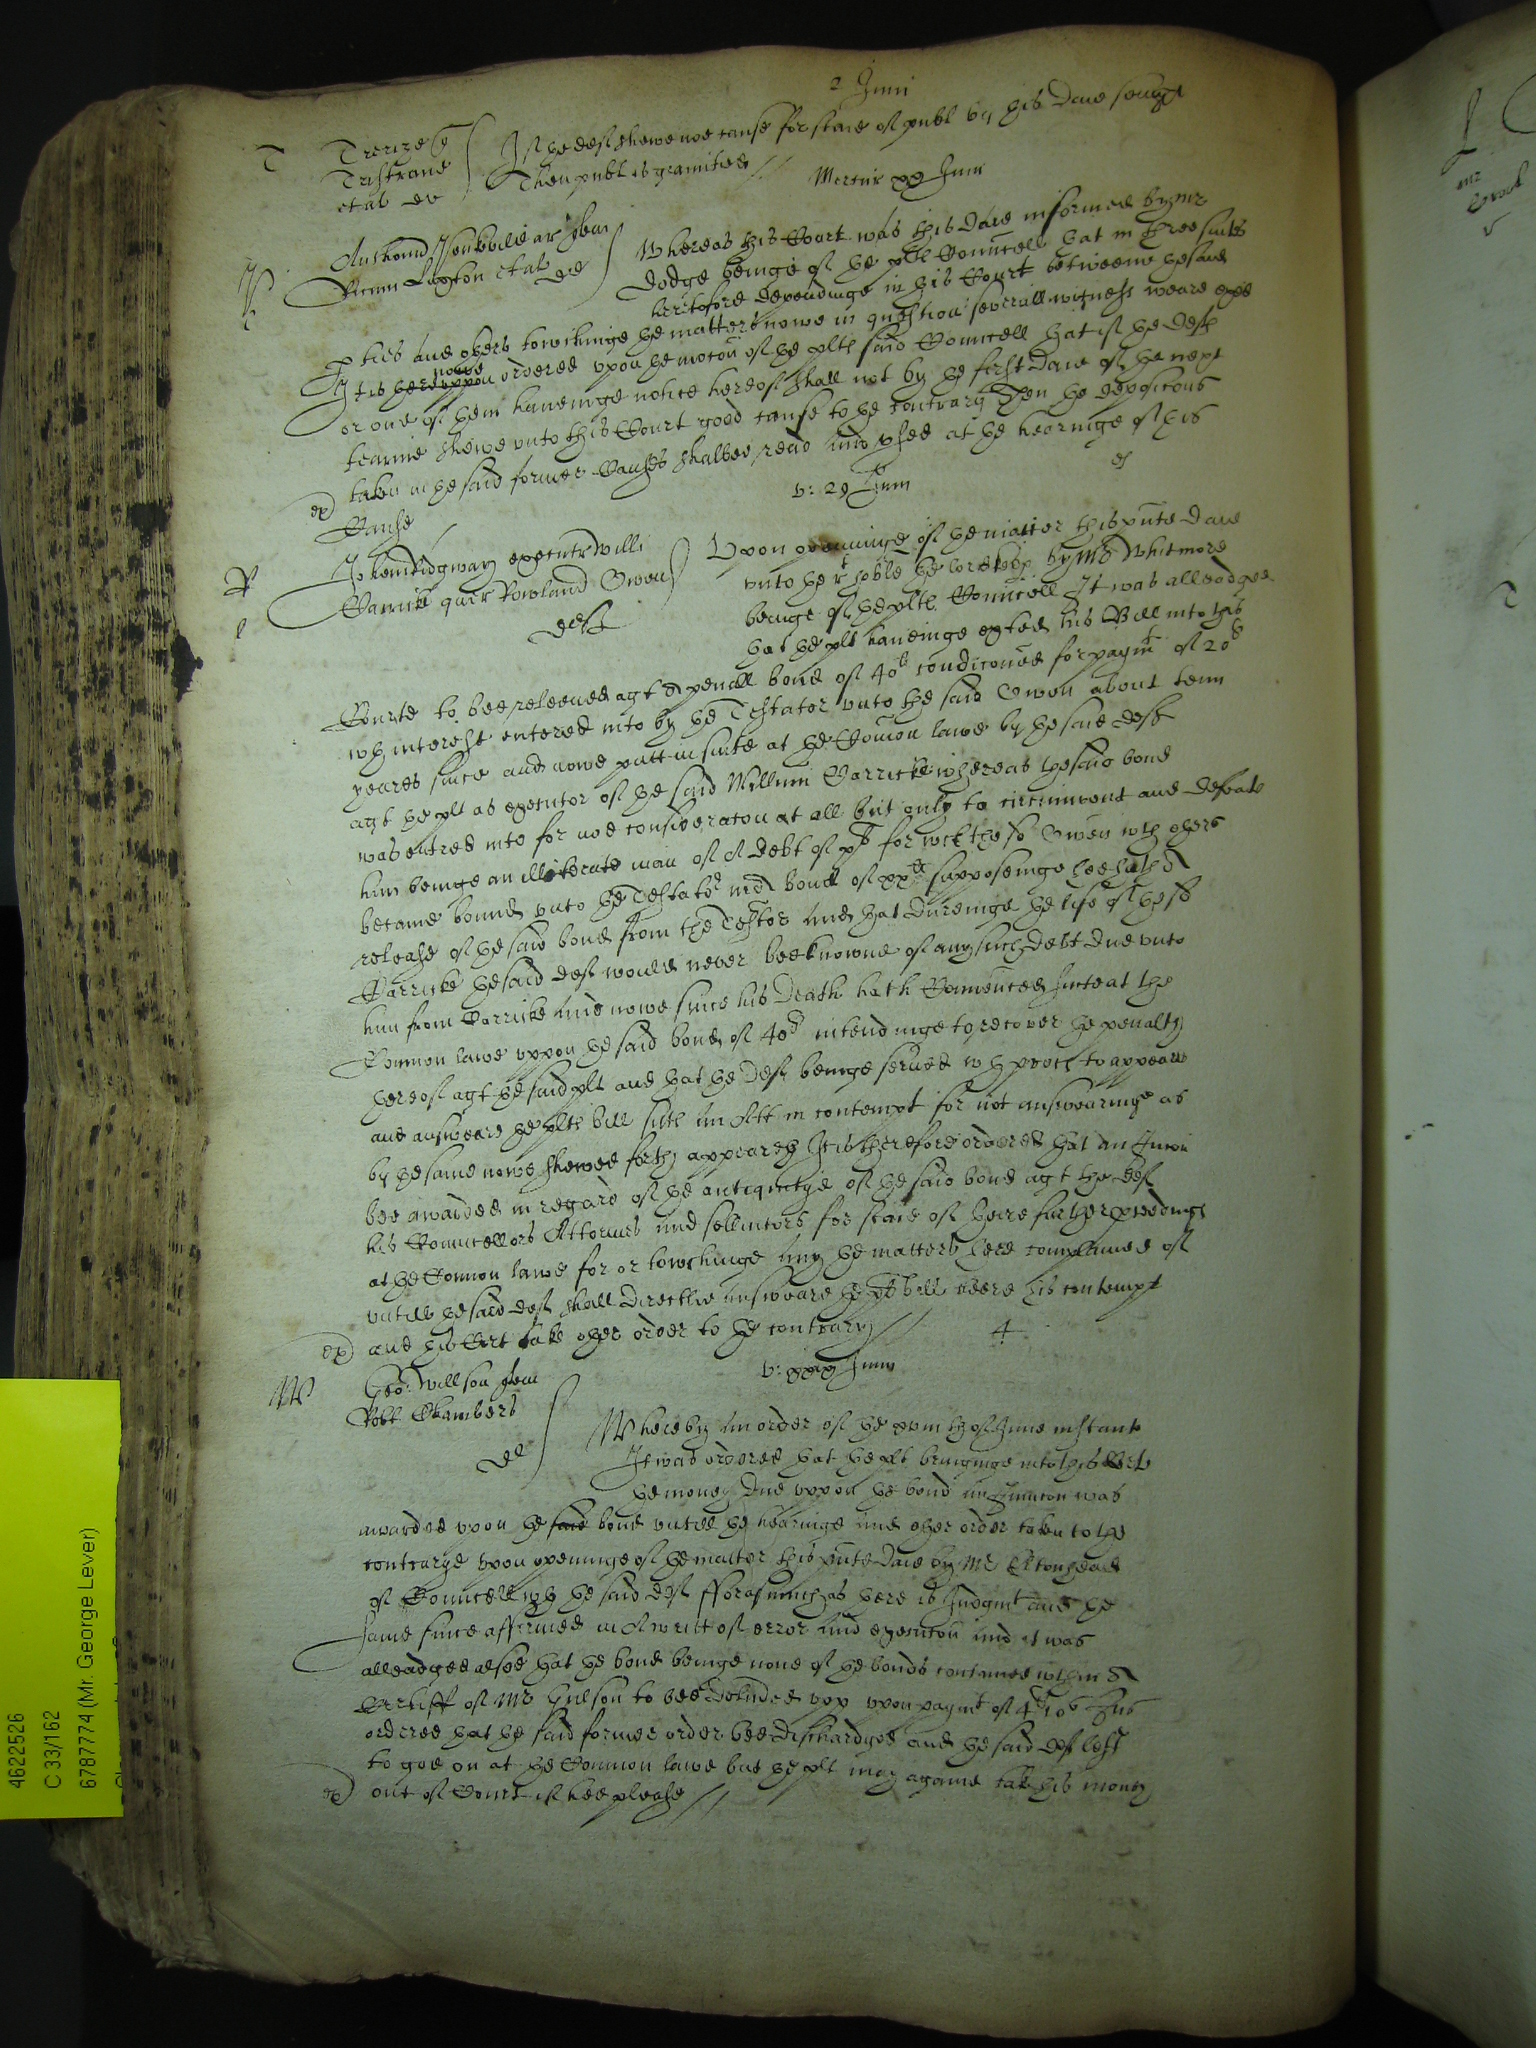 2 Junii
T
Trerize q
Tristrame
et al def
If the def shewe noe cause for staie of publ by this daie sevenight
Then publ is graunted
Mercur xx Junii
gen
Langton et al def
Whereas this Court was this daie informed by Mr
Dodge beinge of the plts Councell that in three suites
heretofore dependinge in this Court betweene the said
pties and others towchinge the matters nowe in question severall witnesses weare exed
It is thereuppon nowe ordered upon the mocon of the plts said Councell that if the defts
or one of them haveinge notice hereof shall not by the first daie of the next
tearme shewe unto this Court good cause to the contrary Then the deposicons
taken in the said former Causes shalbee read and used at the hearinge of this
ex
Cause
v: 29 Junii
R
John Ridgway executr Willi
Carricke quer Rowland Owen
deft
Upon openinge of the matter this pnte daie
unto the r hoble the lord keep by Mr Whitmore
beinge of the plts Councell It was alleadged
that the plt haveinge exhted his Bill into this
Courte to bee releeved agt a penall bond of 40l condiconed for paymt of 20l
wth interest entered into by the Testator unto the said Owen about tenn
yeares since and nowe putt in suite at the Comon lawe by the said deft
agt the plt as executor of the said Willim Carricke whereas the said bond
was entred into for noe consideracon at all but only to circumvent and defeate
him beinge an illiterate man of a debt of xl for wch the sd Owen wth others
became bound unto the Testator in a bond of xxl supposeinge hee hath a
release of the said bond from the Testator And that dureinge the life of the sd
Carricke the said deft would never bee knowne of any such debt due unto
him from Carricke And nowe since his death hath Comenced suite at the
Common lawe uppon the said bond of 40l intendinge to recover the penalty
thereof agt the said plt and that the deft beinge served wth proces to appeare
and answeare the plts bill sitts An Att in contempt for not answearinge as
by the same nowe shewed forth appeareth It is therefore ordered that an Iniuncon
bee awarded in regard of the antiquitye of the said bond agt the deft
his Councellors Attorneis and sollicitors for staie of theire further proceedings
at the Comon lawe for or towchinge any the matters here complained of
untill the said deft shall directlie answeare the plts bill cleere his contempt
ex
and this Court take other order to the contrary
4
v: xxix Junii
W
Geo: Willson gen
Robt Chambers
def
Whereby an order of the xviiith of June instant
It was ordered that the plt bringinge into this Court
the money due uppon the bond an Iniuncon was
awarded upon the said bond untill the hearinge and other order taken to the
contrarye Upon openinge of the matter this pnte daie by Mr Ectonhead
of Councell wth the said deft fforasmuch as there is Judgmt and the
same since affirmed in A writt of error And execucon And it was
alleadged alsoe that the bond beinge none of the bonds contained within a
Certiff of Mr Gulson to bee delivered upp upon paymt of 4l 10s It is
ordered that the said former order bee dischardged and the said deft left
to goe on at the Common lawe but the plt may againe take his money
ex
out of Court if hee please
4622526
C 33/162
6787774 (Mr. George Lever)